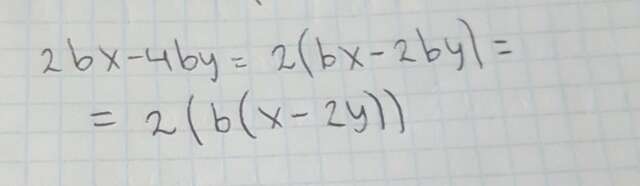 2bx-4by = 2(bx-2by) =
= 2(b(x-2y))